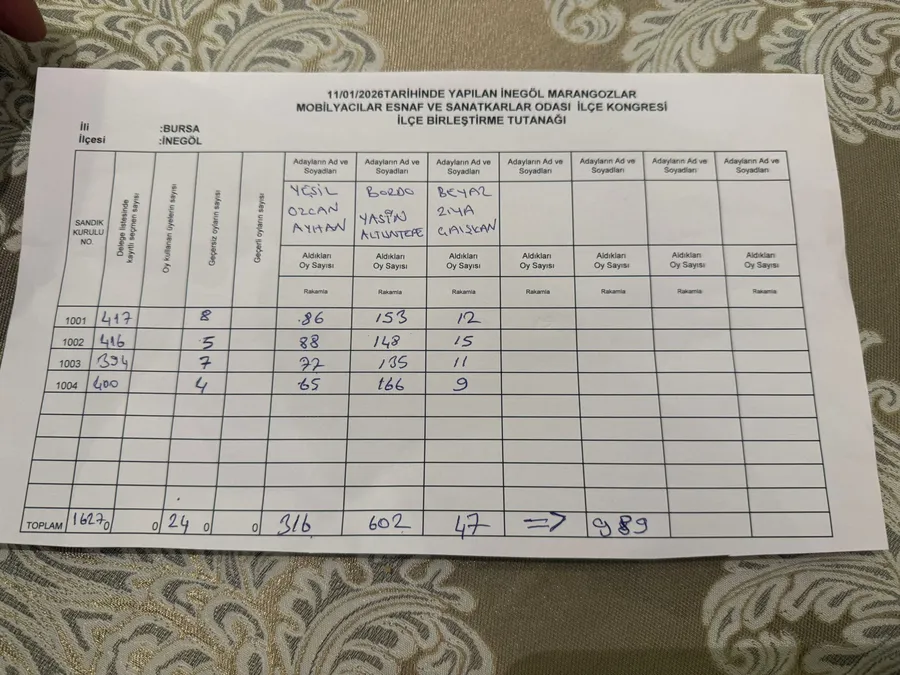 11/01/2026TARİHİNDE YAPILAN İNEGÖL MARANGOZLAR
MOBİLYACILAR ESNAF VE SANATKARLAR ODASI İLÇE KONGRESİ
İLÇE BİRLEŞTİRME TUTANAĞI
İli :BURSA
İlçesi :İNEGÖL
SANDIK KURULU NO.
Delege listesinde kayıtlı seçmen sayısı
Oy kullanan üyelerin sayısı
Geçersiz oyların sayısı
Geçerli oyların sayısı
Adayların Ad ve Soyadları Adayların Ad ve Soyadları Adayların Ad ve Soyadları Adayların Ad ve Soyadları Adayların Ad ve Soyadları Adayların Ad ve Soyadları Adayların Ad ve Soyadları
YEŞİL BORDO BEYAZ
OZCAN YASİN ZİYA
AYHAN ALTUNTEPE ÇALIŞKAN
Aldıkları Oy Sayısı Aldıkları Oy Sayısı Aldıkları Oy Sayısı Aldıkları Oy Sayısı Aldıkları Oy Sayısı Aldıkları Oy Sayısı Aldıkları Oy Sayısı
Rakamla Rakamla Rakamla Rakamla Rakamla Rakamla Rakamla
1001 417 8 86 153 12
1002 416 5 88 148 15
1003 394 7 77 135 11
1004 400 4 65 166 9
TOPLAM 1627 0 0 24 0 0 316 602 47 => 989